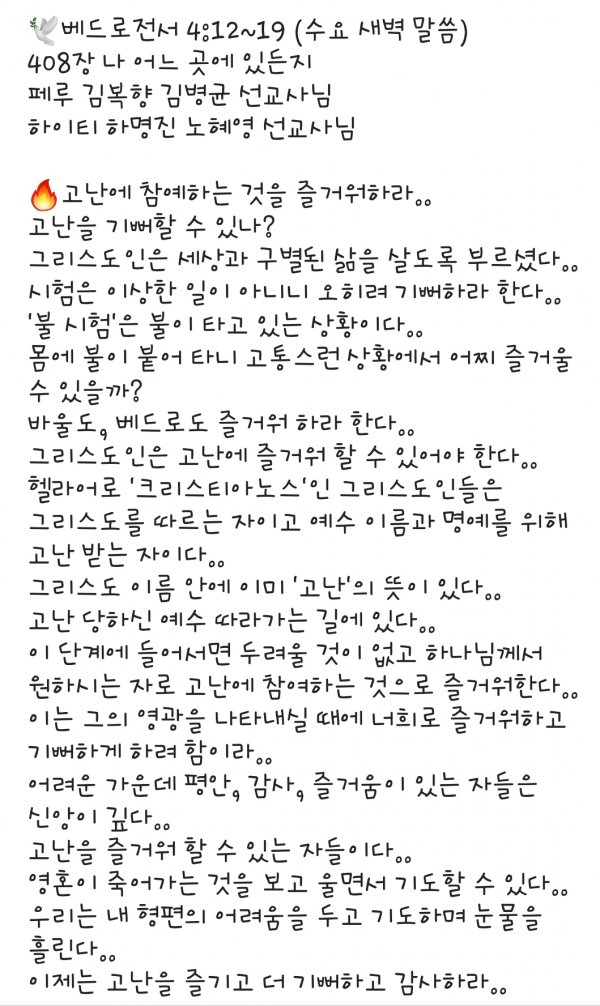 🕊베드로전서 4:12~19 (수요 새벽 말씀)
408장 나 어느 곳에 있든지
페루 김복향 김병균 선교사님
하이티 하명진 노혜영 선교사님

🔥고난에 참예하는 것을 즐거워하라..
고난을 기뻐할 수 있나?
그리스도인은 세상과 구별된 삶을 살도록 부르셨다..
시험은 이상한 일이 아니니 오히려 기뻐하라 한다..
'불 시험'은 불이 타고 있는 상황이다..
몸에 불이 붙어 타니 고통스런 상황에서 어찌 즐거울
수 있을까?
바울도, 베드로도 즐거워 하라 한다..
그리스도인은 고난에 즐거워 할 수 있어야 한다..
헬라어로 '크리스티아노스'인 그리스도인들은
그리스도를 따르는 자이고 예수 이름과 명예를 위해
고난 받는 자이다..
그리스도 이름 안에 이미 '고난'의 뜻이 있다..
고난 당하신 예수 따라가는 길에 있다..
이 단계에 들어서면 두려울 것이 없고 하나님께서
원하시는 자로 고난에 참여하는 것으로 즐거워한다..
이는 그의 영광을 나타내실 때에 너희로 즐거워하고
기뻐하게 하려 함이라..
어려운 가운데 평안, 감사, 즐거움이 있는 자들은
신앙이 깊다..
고난을 즐거워 할 수 있는 자들이다..
영혼이 죽어가는 것을 보고 울면서 기도할 수 있다..
우리는 내 형편의 어려움을 두고 기도하며 눈물을
흘린다..
이제는 고난을 즐기고 더 기뻐하고 감사하라..